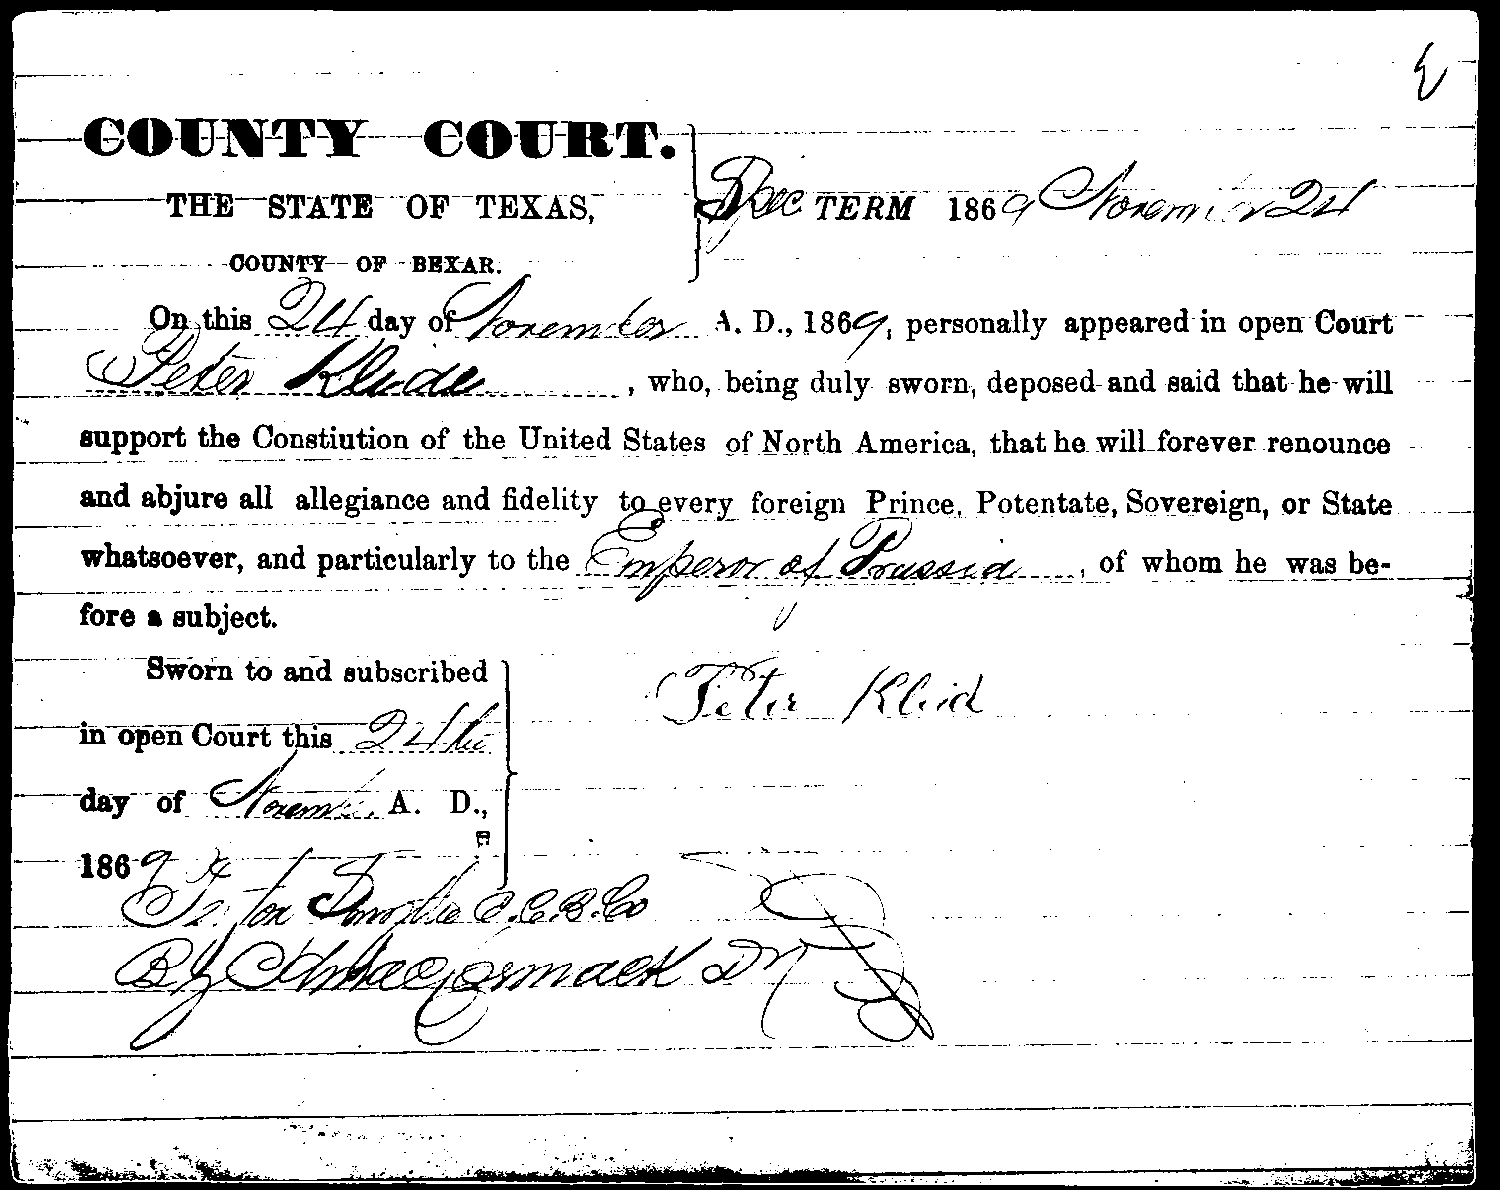 COUNTY COURT.
THE STATE OF TEXAS,
COUNTY OF BEXAR.
Spec TERM 1869 November 24
On this 24 day of November A. D., 1869, personally appeared in open Court
Peter , who, being duly sworn, deposed and said that he will
support the Constiution of the United States of North America, that he will forever renounce
and abjure all allegiance and fidelity to every foreign Prince, Potentate, Sovereign, or State
whatsoever, and particularly to the Emperor of Prussia , of whom he was be-
fore a subject.
Sworn to and subscribed
in open Court this 24th
day of Novembr. A. D.,
1869
Peter Kleid
C.C.B.Co
By